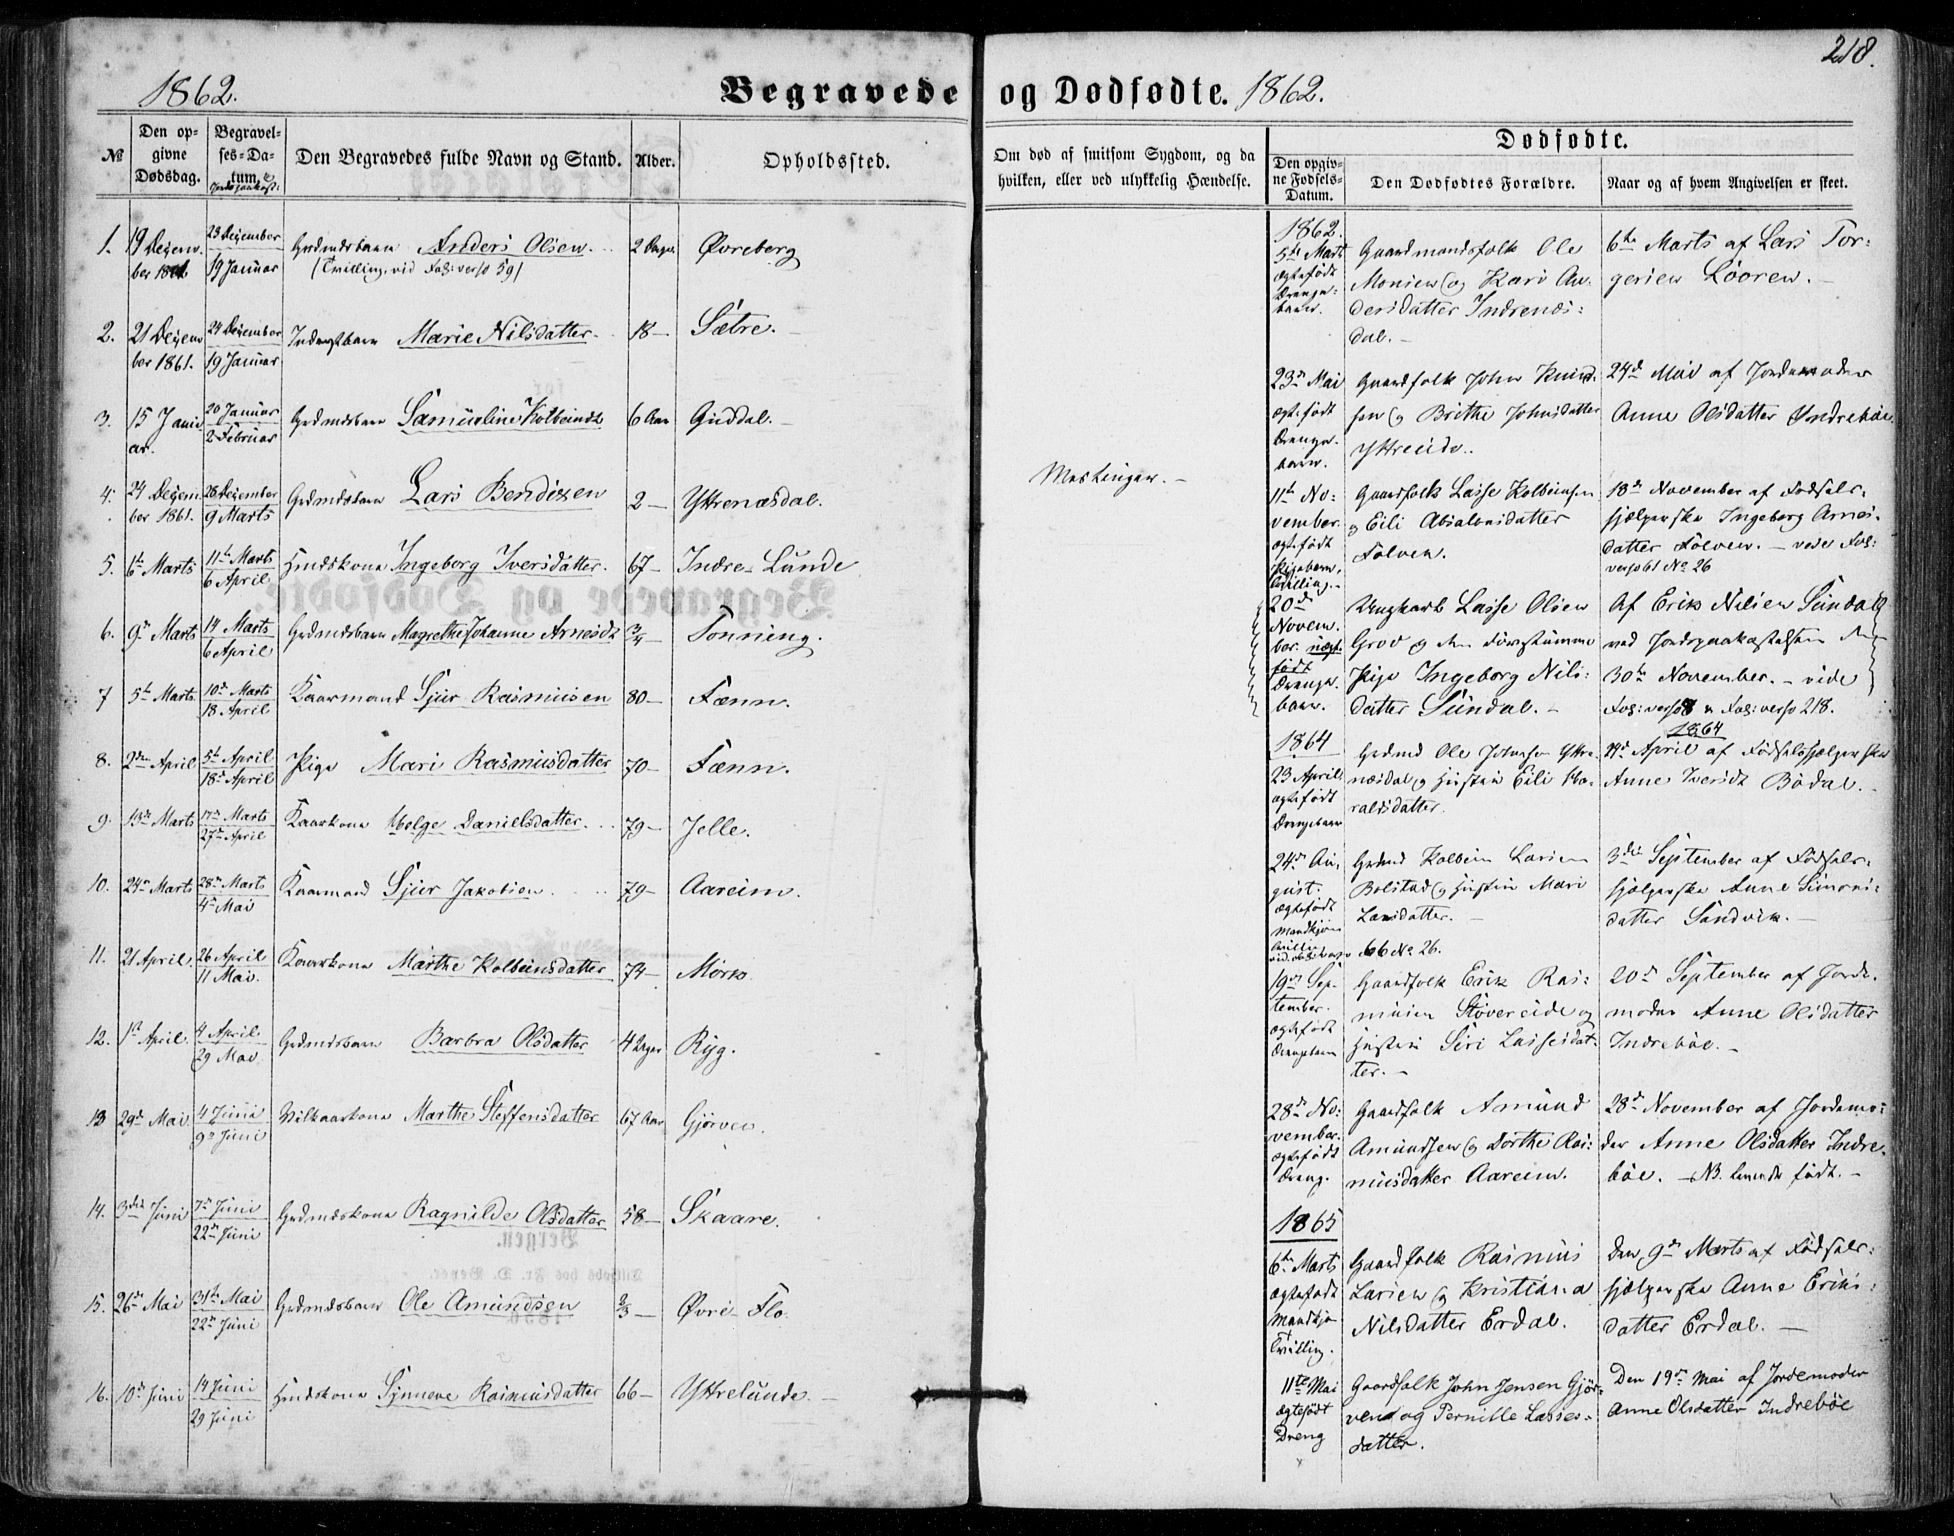 218.
1862. Begravede og Dødfødte. 1862.
№ Den opgivne Dødsdag. Begravelses-Datum, & Jordpaakast: Den Begravedes fulde Navn og Stand. Alder. Opholdssted.
1. 19 Dezember 1861. 23 Dezember 19 Januar Grdmdsbarn Anders Olsen. 2 Dage Øvreberg
(Tvilling, vid Fol: verso 59)
2. 21 Dezember 1861. 24 Dezember 19 Januar Marie Nilsdatter. 18 — Sætre. —
3. 15 Januar. 20 Januar 2 Februar Grdmdsbarn Samueline Kolbeinsdt 6 Aar Guddal. —
4. 24 Dezember 1861. 28 Dezember 9 Marts Grdmdsbarn Lars Bendixen 2 — Yttrenæsdal.
5. 6te Marts 11te Marts 6 April Huuskone Ingeborg Iversdatter. 67 — Indre Lunde
6. 9de Marts 14 Marts 6 April Grdmdsbarn Magrethe Johanne Arnesdt 3/4 — Tonning.
7 5te Marts 10de Marts 18 April Kaarmand Sjur Rasmusen 80 — Fænn.
8. 2den April 5te April 18de April Pige Mari Rasmusdatter 70 — Fænn.
9. 13de Marts 17de Marts 27de April Kaarkone Helge Danielsdatter. 79 — Jelle.
10. 24de Marts 28de Marts 4de Mai Kaarmand Sjur Jakobsen 79 — Aareim.
11. 21 April. 26 April 11 Mai. Kaarkone Marthe Kolbeinsdatter 74 — Mork.
12. 1st April. 4 April 29 Mai. Grdmdsbarn Barbra Olsdatter 4 Dage Ryg.
13 29de Mai 4 Juni 9de Juni Vilkaarkone Marthe Steffensdatter 67 Aar Gjørven.
14. 3die Juni 7de Juni 22de Juni Grdmdskone Ragnilde Olsdatter 58 — Skaare.
15. 26de Mai 31te Mai 22de Juni Grdmdsbarn Ole Amundsen 2/3 — Øvre-Flo.
16. 10de Juni 14 Juni 29 Juni Synneve Rasmusdatter 66 — Yttrelunde. —
Om død af smitsom Sygdom, og da
hvilken, eller ved ulykkelig Hændelse.
Meslinger. —
Dødfødte.
Den opgivne Fødsels-Datum. Den Dødfødtes Forældre. Naar og af hvem Angivelsen er skeet.
1862.
5te Marts ægtefødt Drengebarn. Gaardmandsfolk Ole Monsen og Kari Andersdatter Indrenæsdal. — 6te Marts af Lars Torgersen Looren. —
23de Mai ægtefødt Drengebarn. Gaardfolk John Knudsen og Brithe Johnsdatter Yttreeide. 24de Mai af Jordemoder Anne Olsdatter Yndrebøe.
11te November. ægtefødt Pigebarn, Tvilling. — Gaardfolk Lasse Kolbeinsen og Eili Absalonsdatter Folven. 18de November af Fødselshjælperske Ingeborg Arnesdatter Folven. — vide Fol: verso 61 No 26
20de November. uægtefødt Drengebarn. Ungkarl Lasse Olsen Grov og Pige Ingeborg Nilsdatter Sundal. — Af Erik Nilsen Sundal ved Jordpaakastelsen den 30te November. — vide Fol: verso 218.
1864
23 April ægtefødt Drengebarn Grdmd Ole Yttrenæsdal og Hustru Eili Haraldsdatter. 1864 April af Fødselshjælperske Anne Iversdt Bødal. —
24de August. ægtefødt Mandkjøn 66 No 26. Grdmd Kolbein Larsen Bolstad og Hustru Mari Larsdatter. — 3die September af Fødselshjælperske Anne Simonsdatter Sandvik. —
19de September. ægtefødt Drengebarn Gaardfolk Erik Rasmusen Støvereide og Hustru Siri Lassesdatter. — 20de September af Jordemoder Anne Olsdatter Indrebøe. —
28de November. ægtefødt Dreng. Gaardfolk Amund Amundsen og Dorthe Rasmusdatter Aareim. 28de November af Jordemoder Anne Olsdatter Indrebøe. — NB. levende født. —
1865
6te Marts ægtefødt Mandkjøn Tvilling. Gaardfolk Rasmus Larsen og Kristiana Nilsdatter Erdal. Den 9de Marts af Fødselshjælperske Anne Eriksdatter Erdal. —
11te Mai ægtefødt Dreng Gaardfolk John Jensen Gjørven og Pernille Lassesdatter. Den 19de Mai af Jordemoder Anne Olsdatter Indrebøe